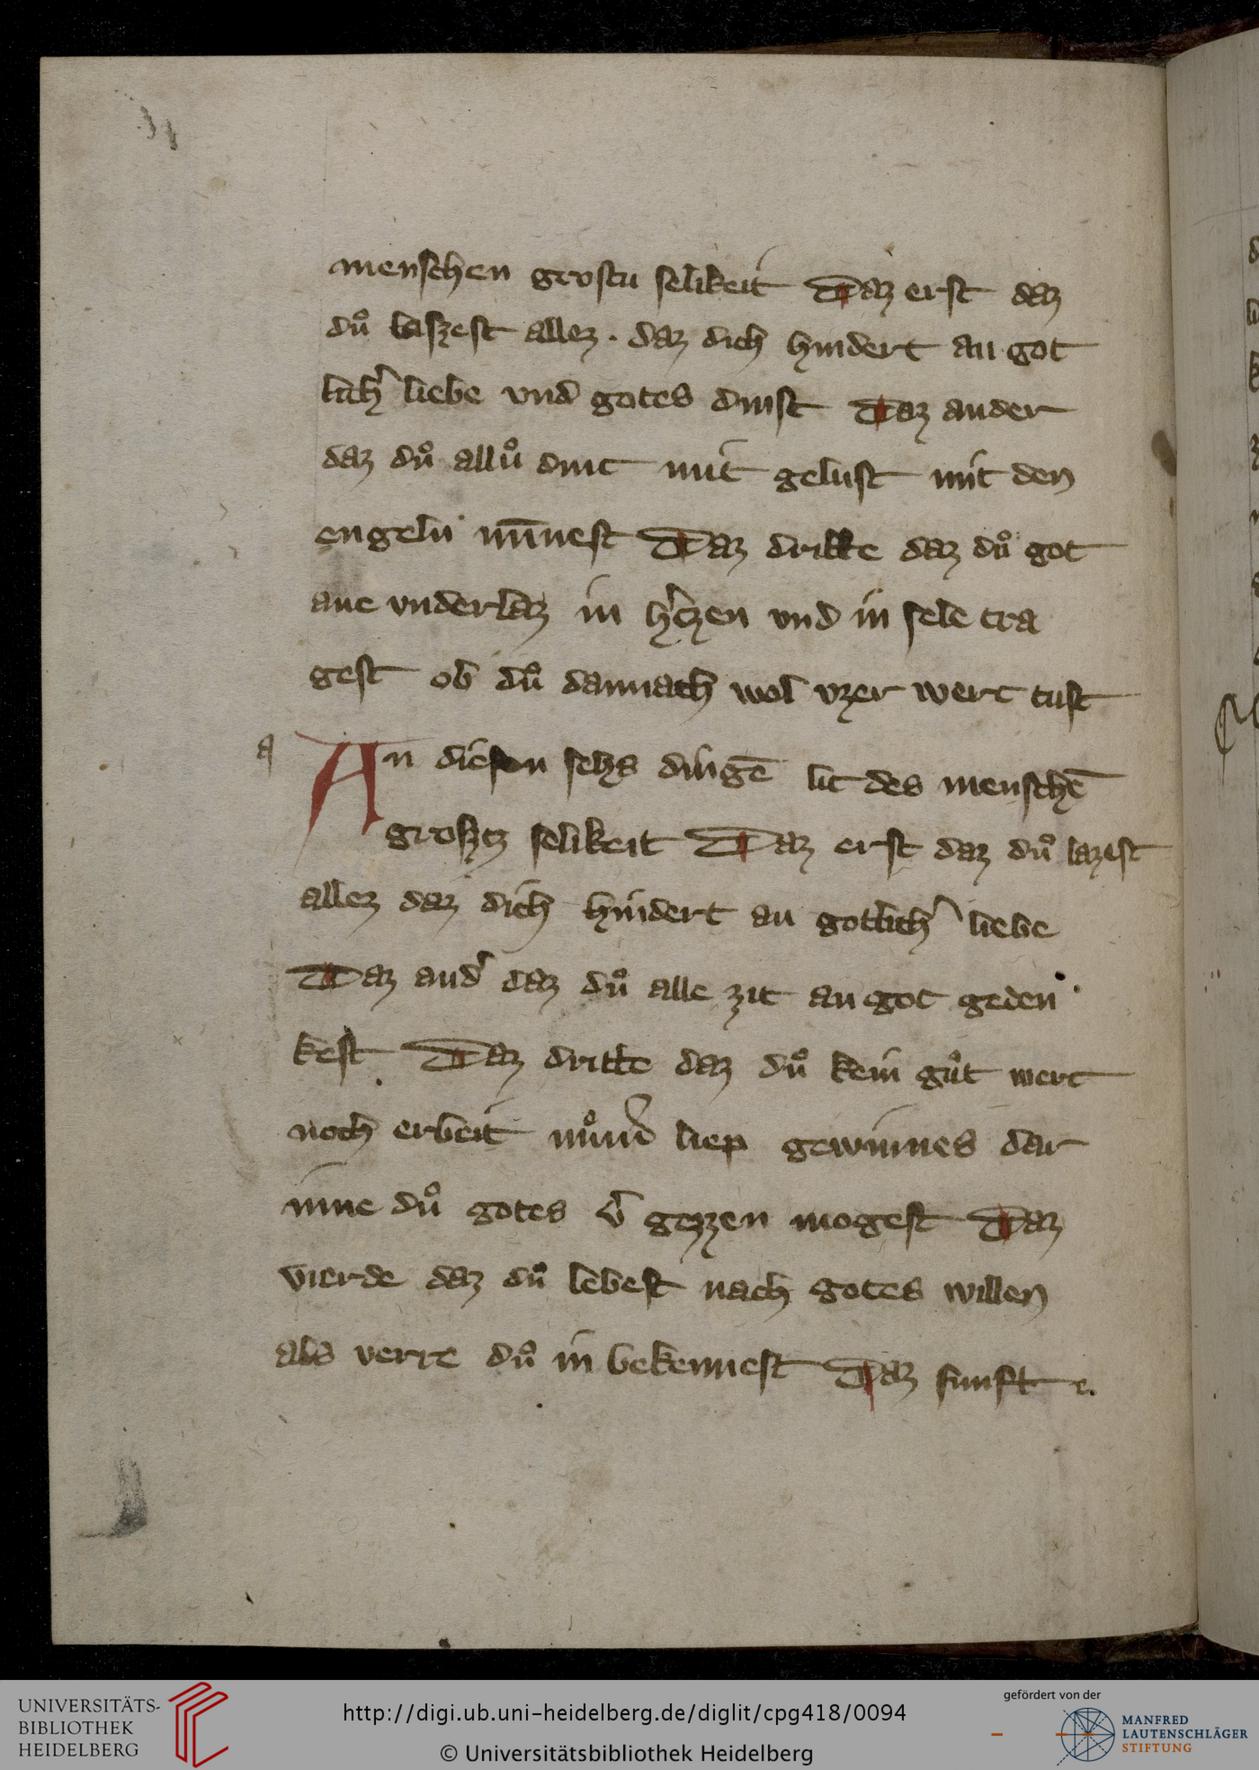 menschen grostu selikeit Daz erst daz
duͦ laszest allez · daz dich hindert an got
lich͛ liebe vnd gotes dinst Daz ander
daz duͦ alluͦ dinc mit gelust mit den
engeln nu̅nest Daz dritte daz duͦ got
ane vnderlaz in h͛czen vnd in sele tra
gest ob duͦ dannach wol vzer werc tust
a
An diesen sehs dinge̅ lit des mensche̅
groszez selikeit Daz erst daz duͦ lazest
allez daz dich hindert an gotlich͛ liebe
Daz and͛ daz duͦ alle zit an got geden
kest Daz dritte daz duͦ kein guͦt werc
noch erbeit liep gewinnes dar
inne duͦ gotes v͛ gezzen mogest Daz
vierde daz duͦ lebest nach gotes willen
als verre duͦ in bekennest Daz funft
UNIVERSITÄTS-
BIBLIOTHEK
HEIDELBERG
http://digi.ub.uni-heidelberg.de/diglit/cpg418/0094
© Universitätsbibliothek Heidelberg
gefördert von der
MANFRED
LAUTENSCHLÄGER
STIFTUNG